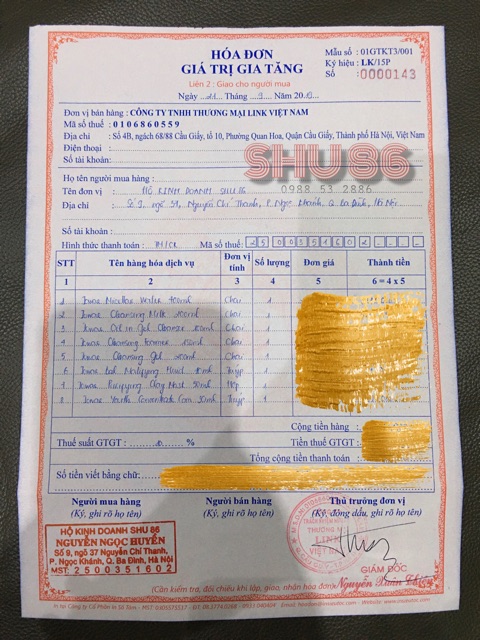 HÓA ĐƠN
GIÁ TRỊ GIA TĂNG
Liên 2 : Giao cho người mua
Mẫu số : 01GTKT3/001
Ký hiệu : LK/15P
Số : 0000143
Ngày Tháng Năm 20
Đơn vị bán hàng : CÔNG TY TNHH THƯƠNG MẠI LINK VIỆT NAM
Mã số thuế : 0106860559
Địa chỉ : Số 4B, ngách 68/88 Cầu Giấy, tổ 10, Phường Quan Hoa, Quận Cầu Giấy, Thành phố Hà Nội, Việt Nam
Điện thoại :
Số tài khoản:
SHU86
0988 53 2886
Họ tên người mua :
Tên đơn vị : HỘ KINH DOANH SHU 86
Địa chỉ : Số 9, ngõ 37, Nguyễn Chí Thanh, P. Ngọc Khánh, Q. Ba Đình, Hà Nội
Số tài khoản :
Hình thức thanh toán : TM/CK Mã số thuế: 2500351602
STT Tên hàng hóa dịch vụ Đơn vị tính Số lượng Đơn giá Thành tiền
1 2 3 4 5 6 = 4 x 5
1 Ioma Micellar Water 400ml Chai 1
2 Ioma Cleansing Milk 200ml Chai 1
3 Ioma Oil in Gel Cleanser Chai 1
4 Ioma Cleansing 150ml Chai 1
5 Ioma Cleansing Gel 200ml Chai 1
6 Ioma Matifying Fluid Tuýp 1
7 Ioma Purifying Clay Mask 50ml Hộp 1
8 Ioma Youth 30ml Tuýp 1
Cộng tiền hàng :
Thuế suất GTGT : 10 % Tiền thuế GTGT :
Tổng cộng tiền thanh toán :
Số tiền viết bằng chữ:
Người mua hàng Người bán hàng Thủ trưởng đơn vị
(Ký, ghi rõ họ tên) (Ký, ghi rõ họ tên) (Ký, đóng dấu, ghi rõ họ tên)
HỘ KINH DOANH SHU 86
NGUYỄN NGỌC HUYỀN
Số 9, ngõ 37 Nguyễn Chí Thanh,
P. Ngọc Khánh, Q. Ba Đình, Hà Nội
MST: 2500351602
THƯƠNG MẠI
LINK
VIỆT NAM
GIÁM ĐỐC
(Cần kiểm tra, đối chiếu khi lập, giao, nhận hóa đơn)